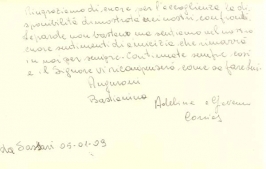 Ringraziamo di cuore per l'accoglienza la di
sponibilità dimostrata nei nostri confronti
le parole non bastano ma saranno nel nostro
cuore sentimenti di amicizia che rimarrà
in noi per sempre. Continuate sempre così
e il Signore vi ricompenserà come sa fare Lui
Auguroni
Bastianino
Adeline e
da Sassari 05-01-09